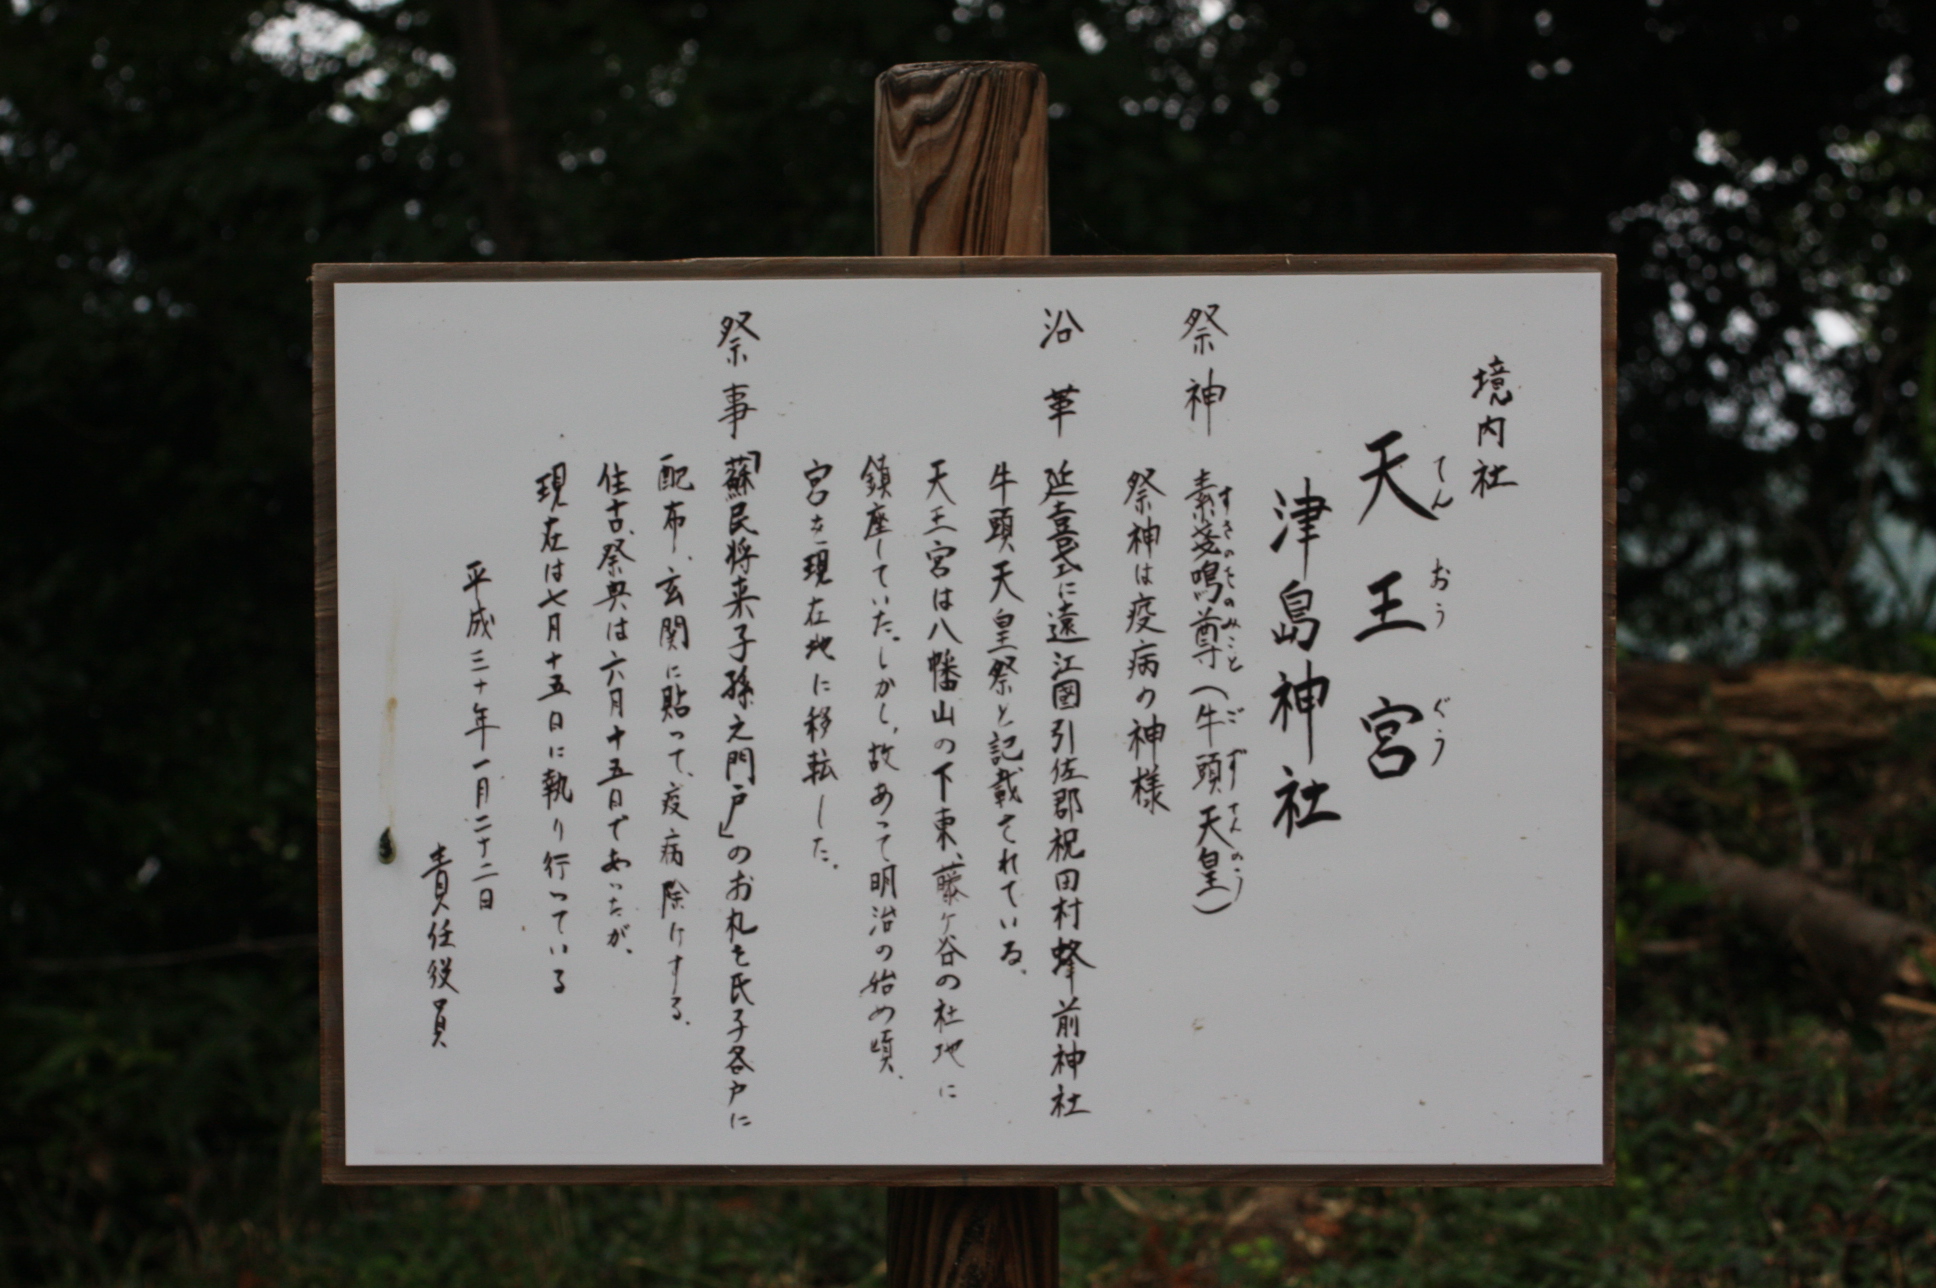 境内社
天王宮
てんおうぐう
津島神社
祭神 素戔嗚尊(牛頭天皇)
すさのをのみこと ごずてんのう
祭神は疫病の神様
沿革 延喜式に遠江國引佐郡祝田村蜂前神社
牛頭天皇祭と記載されている。
天王宮は八幡山の下東、藤ヶ谷の社地に
鎮座していた。しかし、故あって明治の始め頃、
宮を現在地に移転した。
祭事 「蘇民将来子孫之門戸」のお札を氏子各戸に
配布、玄関に貼って、疫病除けする。
往古、祭典は六月十五日であったが、
現在は七月十五日に執り行っている
平成三十年一月二十二日
責任役員